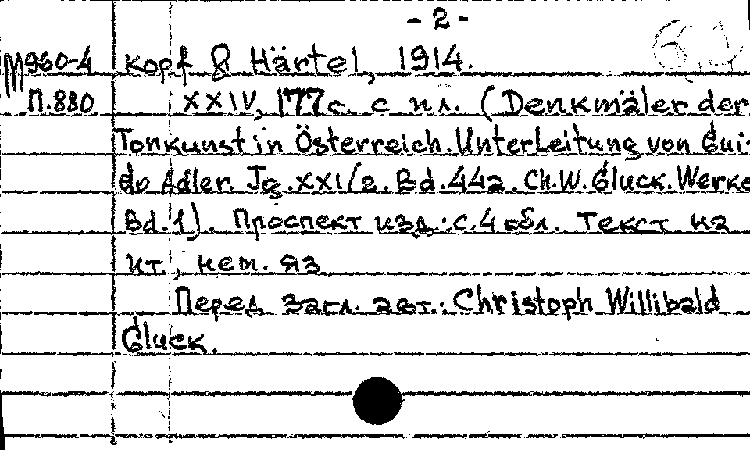 - 2 -
М960-4 kopf & Härtel, 1914.
П.880 XXIV, 177 с. с ил. (Denkmäler der
Tonkunst in Österreich. Unter Leitung von Gui-
do Adler. Jg. XXI/2. Bd. 44a. Ch. W. Gluck. Werke
Bd. 1). Проспект изд.: с. 4 обл. Текст на
ит., нем. яз
Перед загл. авт.: Christoph Willibald
Gluck.